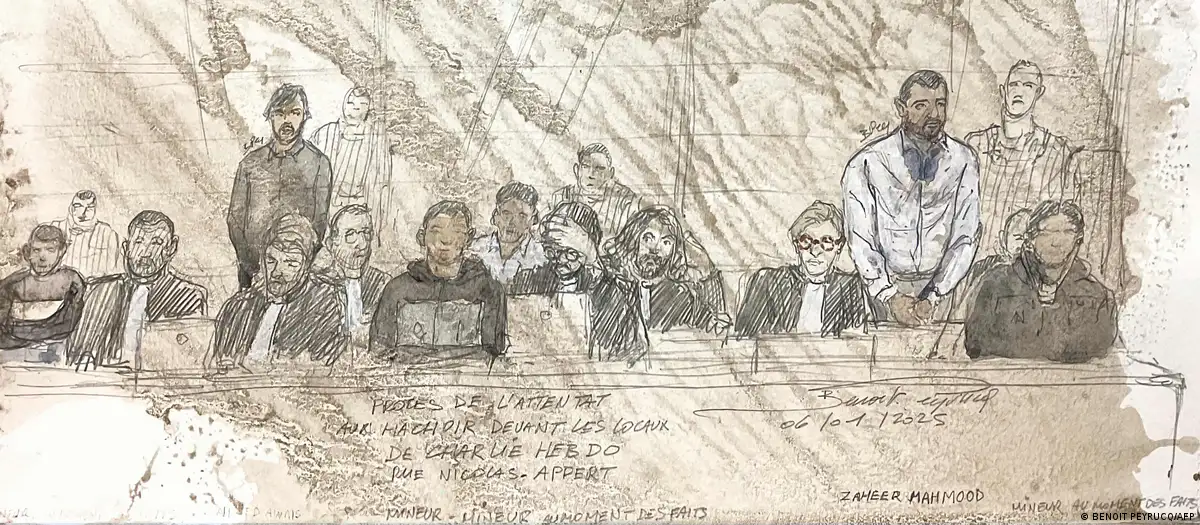 PROCÈS DE L'ATTENTAT
AU HACHOIR DEVANT LES LOCAUX
DE CHARLIE HEBDO
RUE NICOLAS-APPERT
Benoit Peyrucq
06/01/2025
ZAHEER MAHMOOD
MINEUR - MINEUR AU MOMENT DES FAITS
MINEUR AU MOMENT DES FAITS
© BENOIT PEYRUCQ/AFP